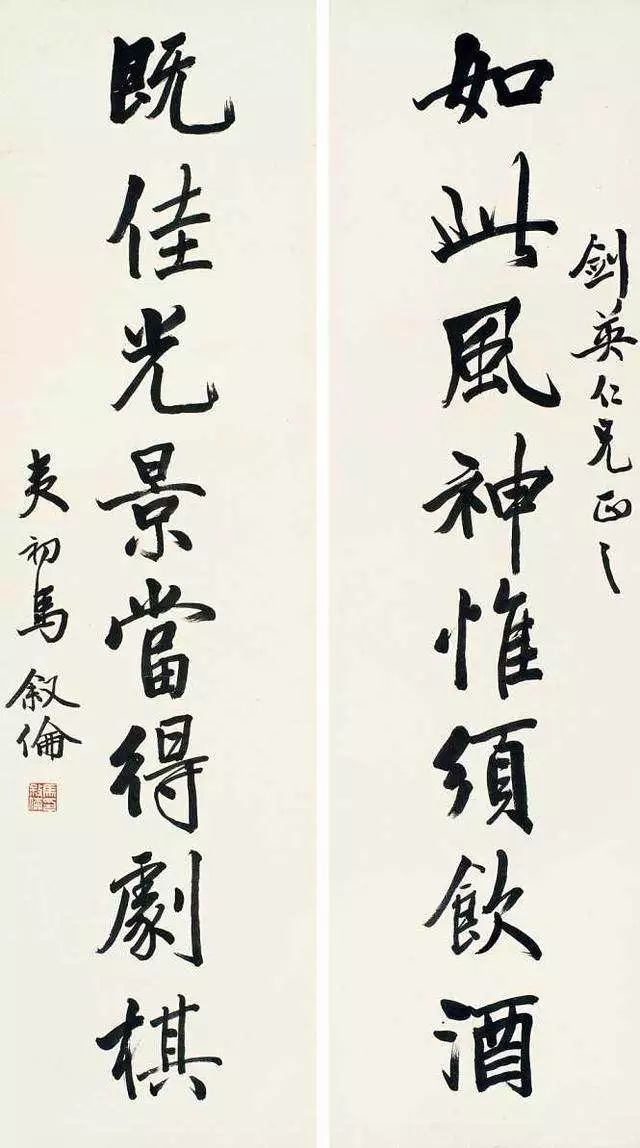 剑英仁兄正之
如此風神惟須飲酒
既佳光景當得劇棋
夷初馬叙倫